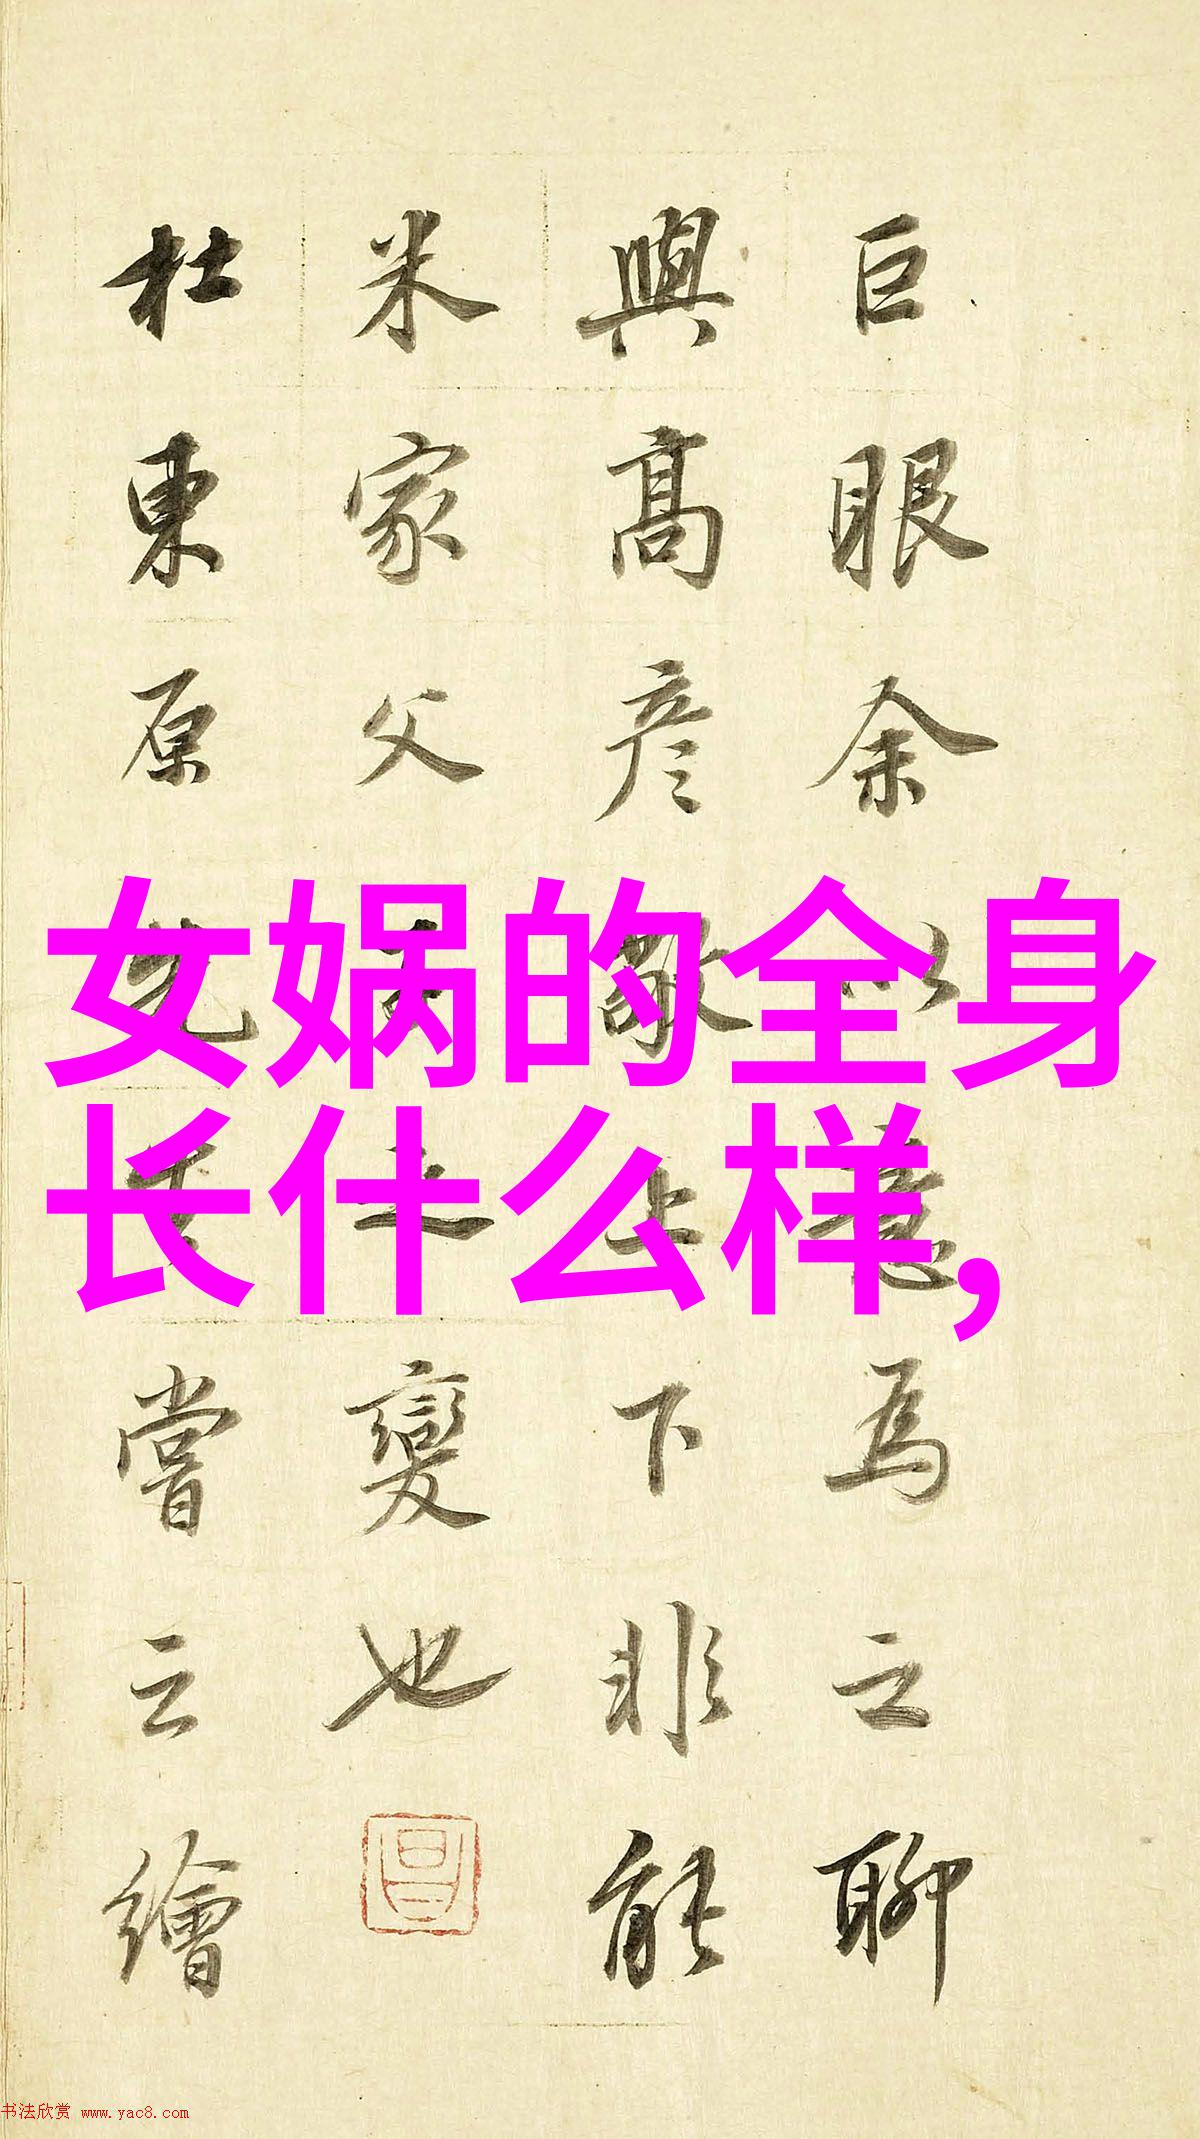 巨眼余以意為之聊
與高彦敬上下非能
米家父子之變也
杜東原先生嘗云繪
女娲的全身
长什么样,
书法欣赏 www.yac8.com